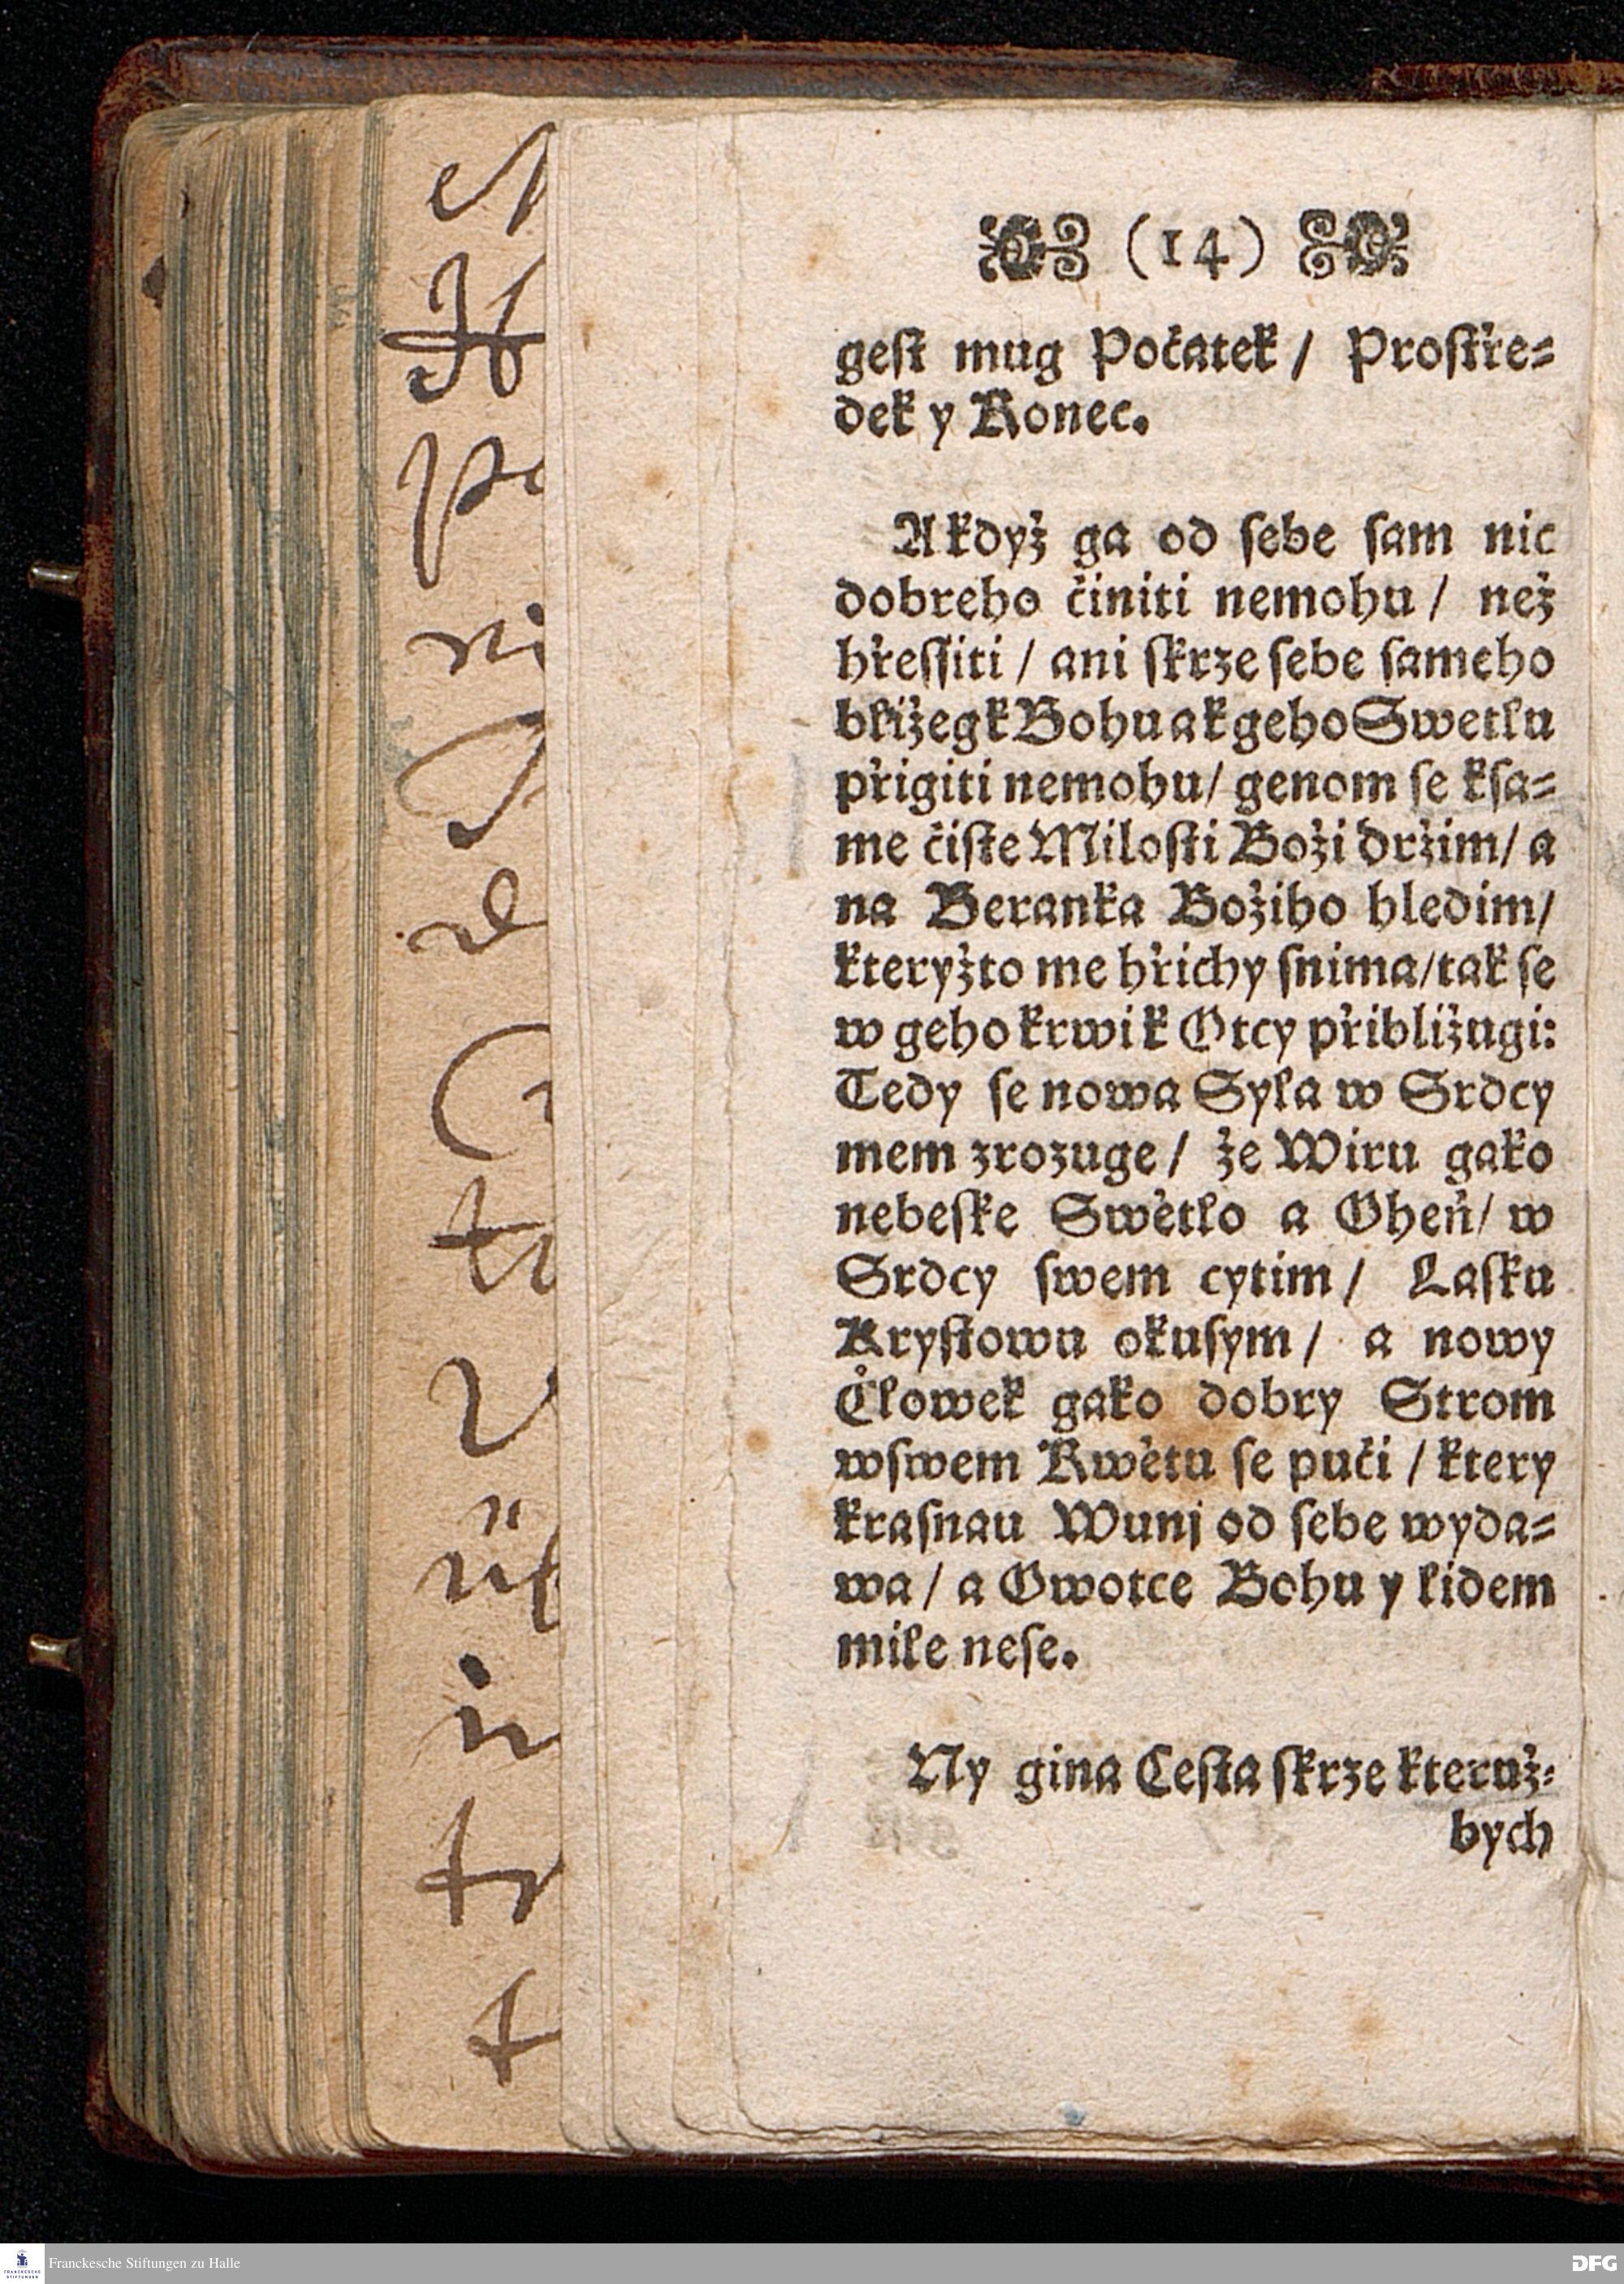 (14)
geſt mug Počatek / Proſtře⸗
dek y Konec.
A když ga od ſebe ſam nic
dobreho činiti nemohu / než
hřeſſiti / ani ſkrze ſebe ſameho
bližegk Bohu ak geho Swetlu
přigiti nemohu / genom ſe kſa⸗
me čiſte Miloſti Boži držim / a
na Beranka Božiho hledim /
kteryžto me hřichy ſnima / tak ſe
w geho krwi k Otcy přibližugi:
Tedy ſe nowa Syla w Srdcy
mem zrozuge / že Wiru gako
nebeſke Swětlo a Oheň / w
Srdcy ſwem cytim / Laſku
Kryſtowu okuſym / a nowy
Člowek gako dobry Strom
wſwem Kwětu ſe puči / ktery
kraſnau Wunj od ſebe wyda⸗
wa / a Owotce Bohu y lidem
mile neſe.
Ny gina Ceſta ſkrze kteruž⸗
bych
Franckesche Stiftungen zu Halle
DFG